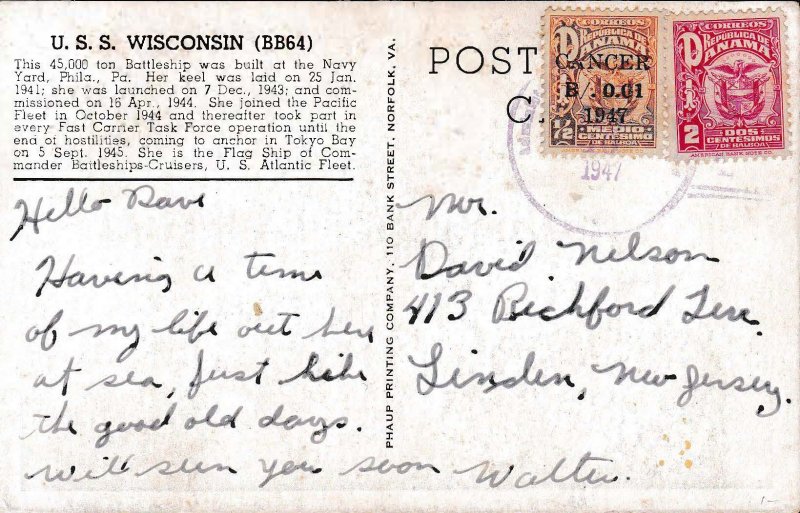 U. S. S. WISCONSIN (BB64)
This 45,000 ton Battleship was built at the Navy
Yard, Phila., Pa. Her keel was laid on 25 Jan.
1941; she was launched on 7 Dec., 1943; and com-
missioned on 16 Apr., 1944. She joined the Pacific
Fleet in October 1944 and thereafter took part in
every Fast Carrier Task Force operation until the
end of hostilities, coming to anchor in Tokyo Bay
on 5 Sept. 1945. She is the Flag Ship of Com-
mander Battleships-Cruisers, U. S. Atlantic Fleet.
Hello Dave
Having a time
of my life out here
at sea, just like
the good old days.
will seen you soon Walter.
PHAUP PRINTING COMPANY, 110 BANK STREET, NORFOLK, VA.
POST
C
CORREOS
REPUBLICA DE
PANAMA
CANCER
B/. 0.01
1947
1/2
MEDIO
CENTESIMO
DE BALBOA
CORREOS
REPUBLICA DE
PANAMA
2
DOS
CENTESIMOS
DE BALBOA
AMERICAN BANK NOTE CO.
1947
Mr.
David Nelson
413 Bickford Terr.
Linden, New Jersey.